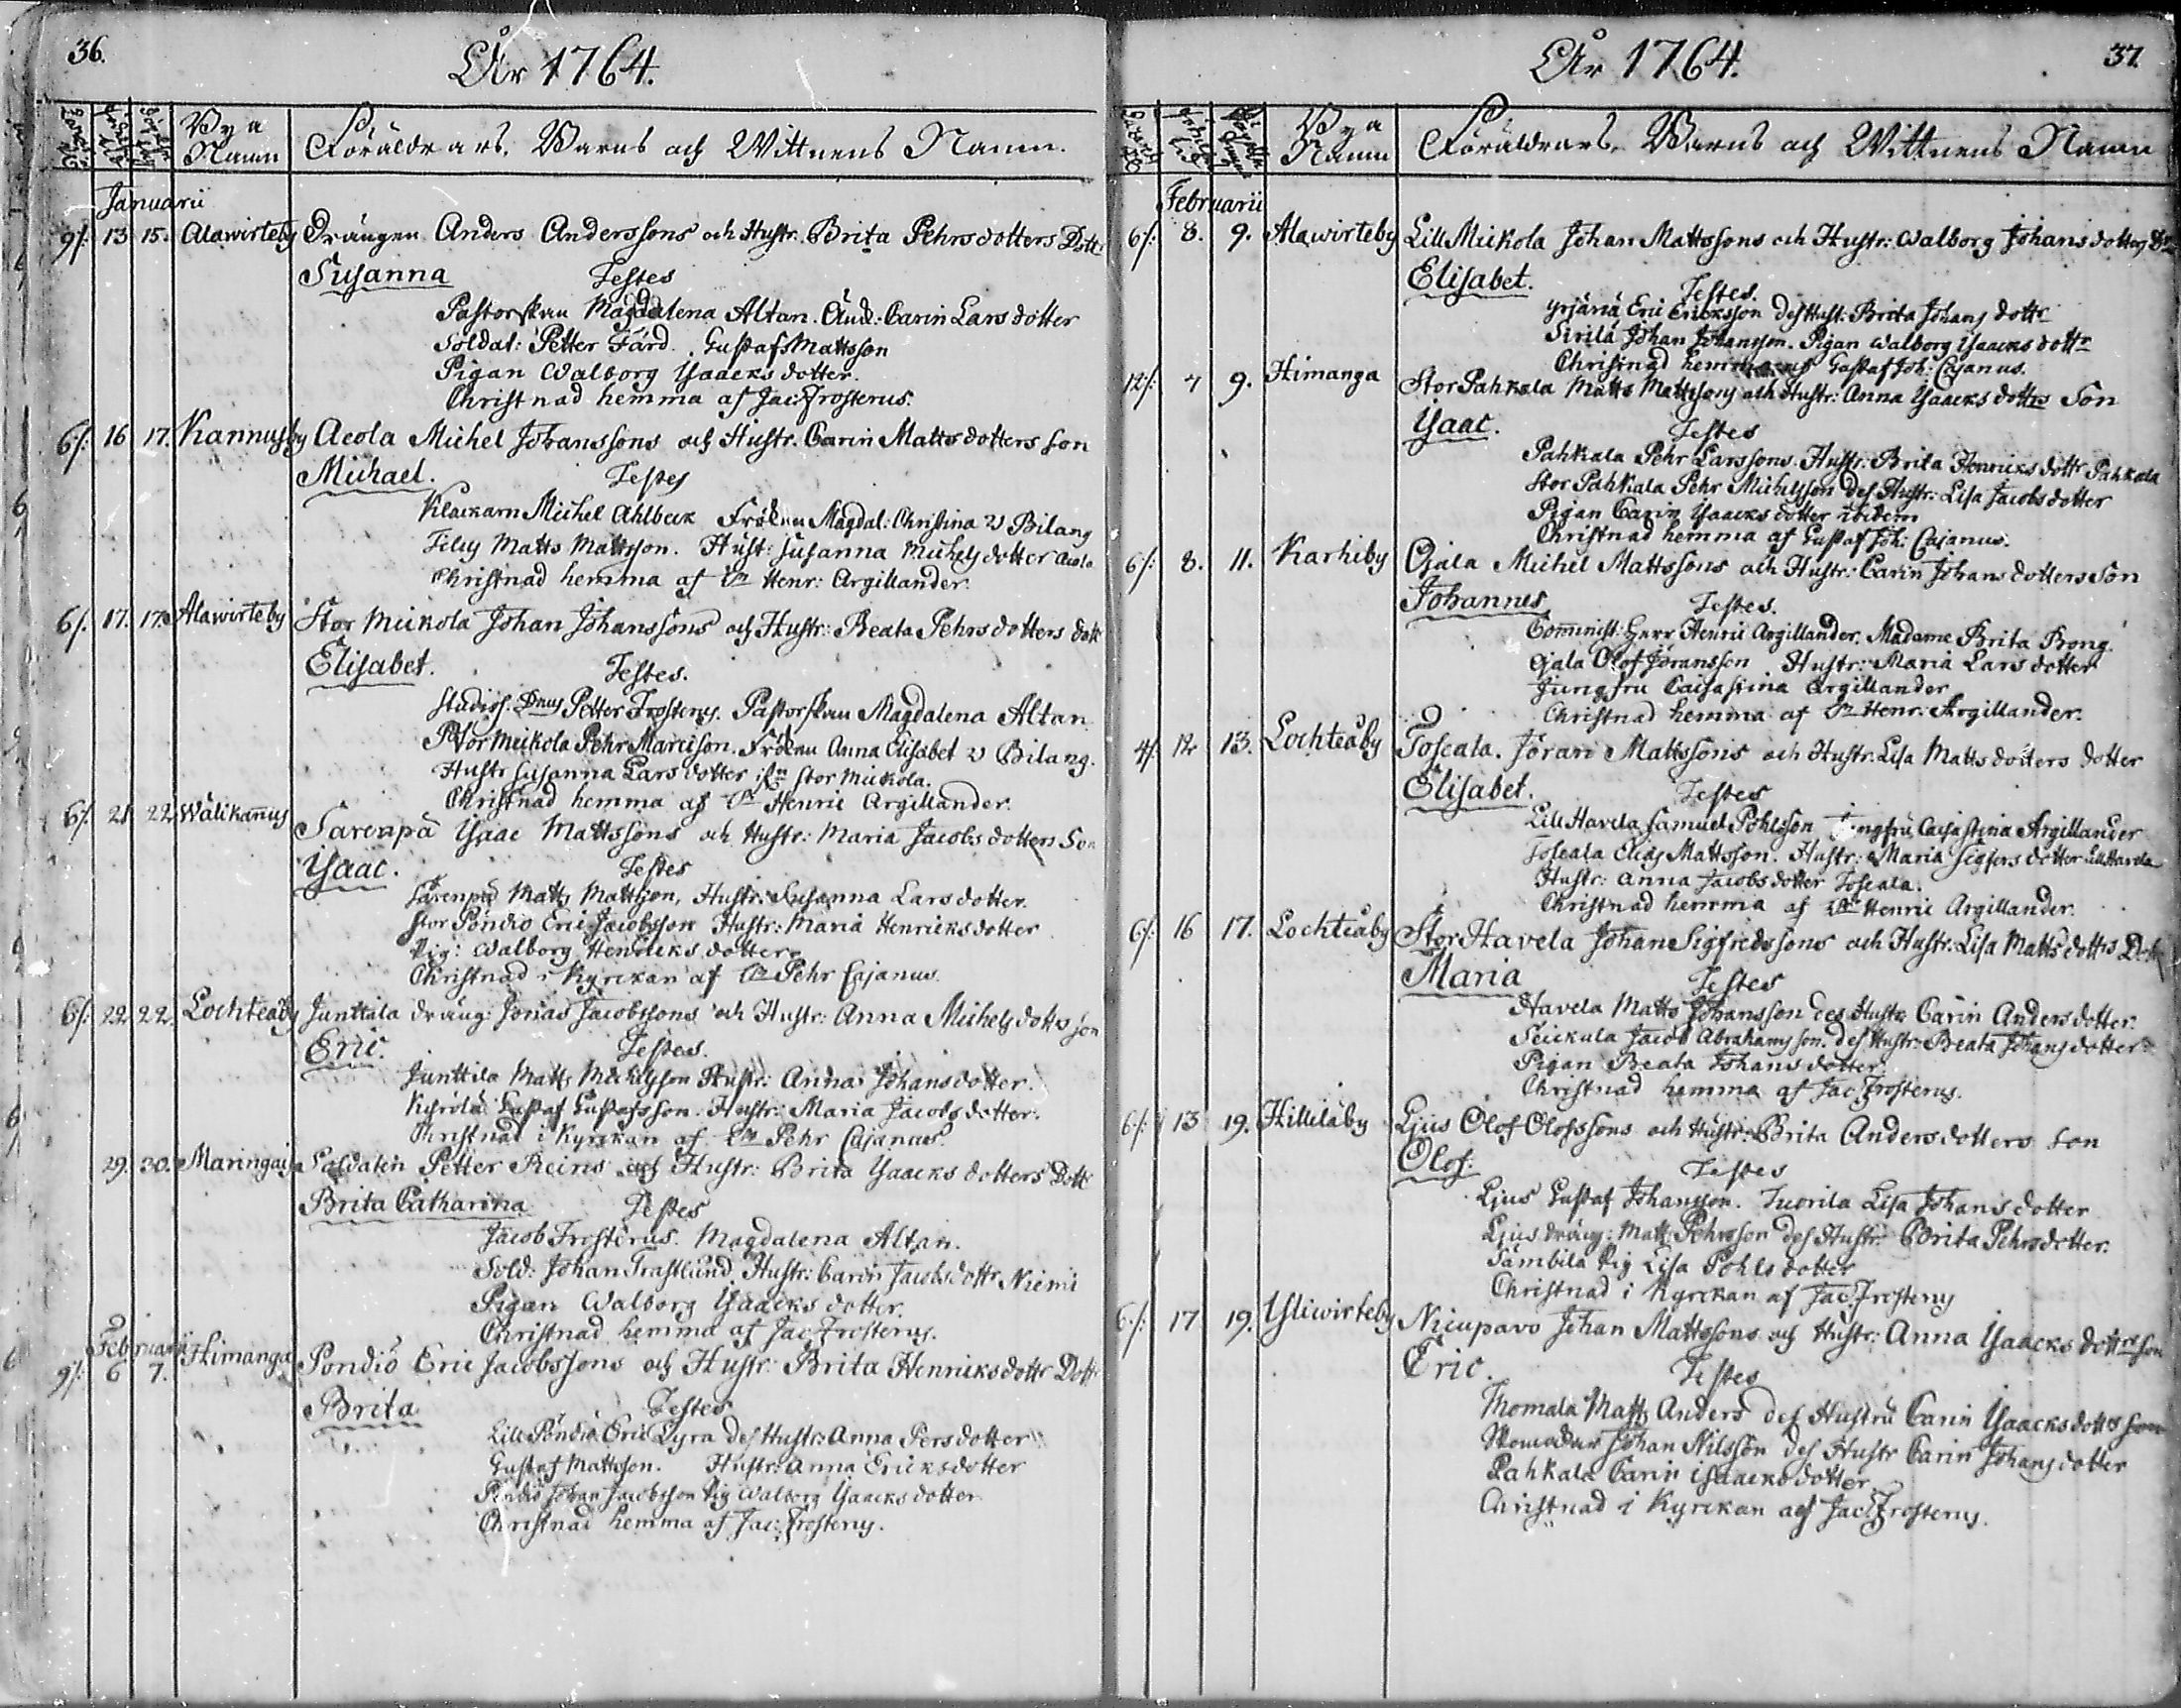 36.
År 1764.
Bya Namn
Föräldrars, Barns och Wittnens Namn.
Januarii
9/: 13 15. Alawirteby Drängen Anders Anderssons och Hustr. Brita Pehrsdotters Dott
Susanna Testes
Pastorskan Magdalena Altan. Carin Larsdotter
Soldat: Petter Färd. Gustaf Mattsson
Pigan Walborg Ysaacksdotter.
Christnad hemma af Jac: Frosterus.
6/: 16 17. Kannusby Aeola Michel Johanssons och Hustr. Carin Mattsdotters Son
Michael. Testes
Klåckarn Michel Ahlbeck Fröken Magdal: Christina v Bilang
Matts Mattsson. Hust: Susanna Michelsdotter
Christnad hemma af Dn Henr: Argillander.
6/. 17. 17. Alawirteby Stor Mickola Johan Johanssons och Hustr: Beata Pehrsdotters dott
Elisabet. Testes.
Studios. Dnus Petter Frosterus. Pastorskan Magdalena Altan
Stor Mickola Pehr Marcison. Fröken Anna Elisabet v Bilang.
Hustr Susanna Larsdotter Stor Mickola.
Christnad hemma af Dn Henric Argillander.
6/. 21 22 Wälikannus Sarenpä Ysaac Mattssons och Hustr: Maria Jacobsdotters So
Ysaac. Testes
Särenpä Matts Mattsson, Hustr: Susanna Larsdotter.
Stor Pöndiö Eric Jacobsson Hustr: Maria Henricksdotter
Pig: Walborg Hendricksdotter
Christnad i Kyrckan af Dn Pehr Cajanus.
6/: 22 22. Lochteåby Junttila dräng: Jonas Jacobssons och Hustr: Anna Michelsdottrs son
Eric. Testes.
Junttila Matts Michelsson Hustr: Anna Johansdotter.
Gustaf Gustafsson. Hustr: Maria Jacobsdotter.
Christnad i Kyrckan af Dn Pehr Cajanus.
29. 30. Maringais Soldaten Petter Reins och Hustr: Brita Ysaacksdotters Dott
Brita Catharina Testes
Jacob Frosterus. Magdalena Altan.
Sold: Johan Trastlund Hustr: Carin Jacobsdottr Niemi
Pigan Walborg Ysaacksdotter.
Christnad hemma af Jac: Frosterus.
Februarii
9/: 6 7. Himanga Pöndiö Eric Jacobssons och Hustr: Brita Henriksdottr Dott
Brita Testes
Lill Pöndiö Eric Lyra des Hustr: Anna Persdotter
Gustaf Mattsson. Hustr: Anna Ericksdotter
Pöndiö Johan Jacobsson Pig Walborg Ysaacksdotter
Christnad hemma af Jac: Frosterus.
37.
År 1764.
Bya Namn
Föräldrars, Barns och Wittnens Namn
Februarii
6/: 8. 9. Alawirteby Lill Mickola Johan Mattssons och Hustr: Walborg Johansdotters
Elisabet. Testes.
Yrjänä Eric Ericksson des Hust: Brita Johansdottr
Sirilä Johan Johansson. Pigan Walborg Ysaacksdottr
Christnad hemma af Gustaf Joh: Cajanus.
12/: 7 9. Himanga Stor Pahkala Matts Mattssons och Hustr: Anna Ysaacksdottrs Son
Ysaac. Testes
Pahkala Pehr Larssons Hustr: Brita Henricksdottr Pahkala
Stor Pahkala Pehr Michelsson des Hustr: Lisa Jacobsdotter
Pigan Carin Ysaacksdotter ibidem
Christnad hemma af Gustaf Joh: Cajanus.
6/: 8. 11. Karhiby Ojala Michel Mattssons och Hustr: Carin Johansdotters Son
Johannes Testes.
Comminist: Herr Henric Argillander. Madame Brita Bong.
Ojala Olof Jöransson Hustr: Maria Larsdotter
Jungfru Caisa Stina Argillander
Christnad hemma af Dn Henr: Argillander.
4/: 12 13. Lochteåby Toscala. Jöran Mattssons och Hustr: Lisa Mattsdotters dotter
Elisabet. Testes
Lill Havela Samuel Pohlsson Jungfru Caisa Stina Argillander
Toscala Elias Mattsson. Hustr: Maria Sigfersdotter Lill Havela
Hustr: Anna Jacobsdotter Toscala.
Christnad hemma af Dn Henric Argillander.
6/: 16 17. Lochteåby Stor Havela Johan Sigfredssons och Hustr: Lisa Mattsdottrs Dott
Maria Testes
Havela Matts Johansson des Hustr Carin Andersdotter.
Jacob Abrahamsson. des Hustr: Beata Johansdotter
Pigan Beata Johansdotter
Christnad hemma af Jac: Frosterus.
6/: 13 19. Hilliläby Ljus Olof Olofssons och Hustr: Brita Andersdotters Son
Olof: Testes
Ljus Gustaf Johansson. Tuorila Lisa Johansdotter
Ljus dräng: Matts Pehrsson des Hustr: Brita Pehrsdotter.
Sämbilä Pig Lisa Pohlsdotter
Christnad i Kyrckan af Jac: Frosterus
6/: 17 19. Ylliwirteby Nicupavo Johan Mattssons och Hustr: Anna Ysaacksdottrs son
Eric. Testes
Thomala Matts Anders des Hustru Carin Ysaacksdottr
Johan Nilsson des Hustr Carin Johansdotter
Pahkala Carin Ysaacksdotter
Christnad i Kyrckan af Jac: Frosterus.